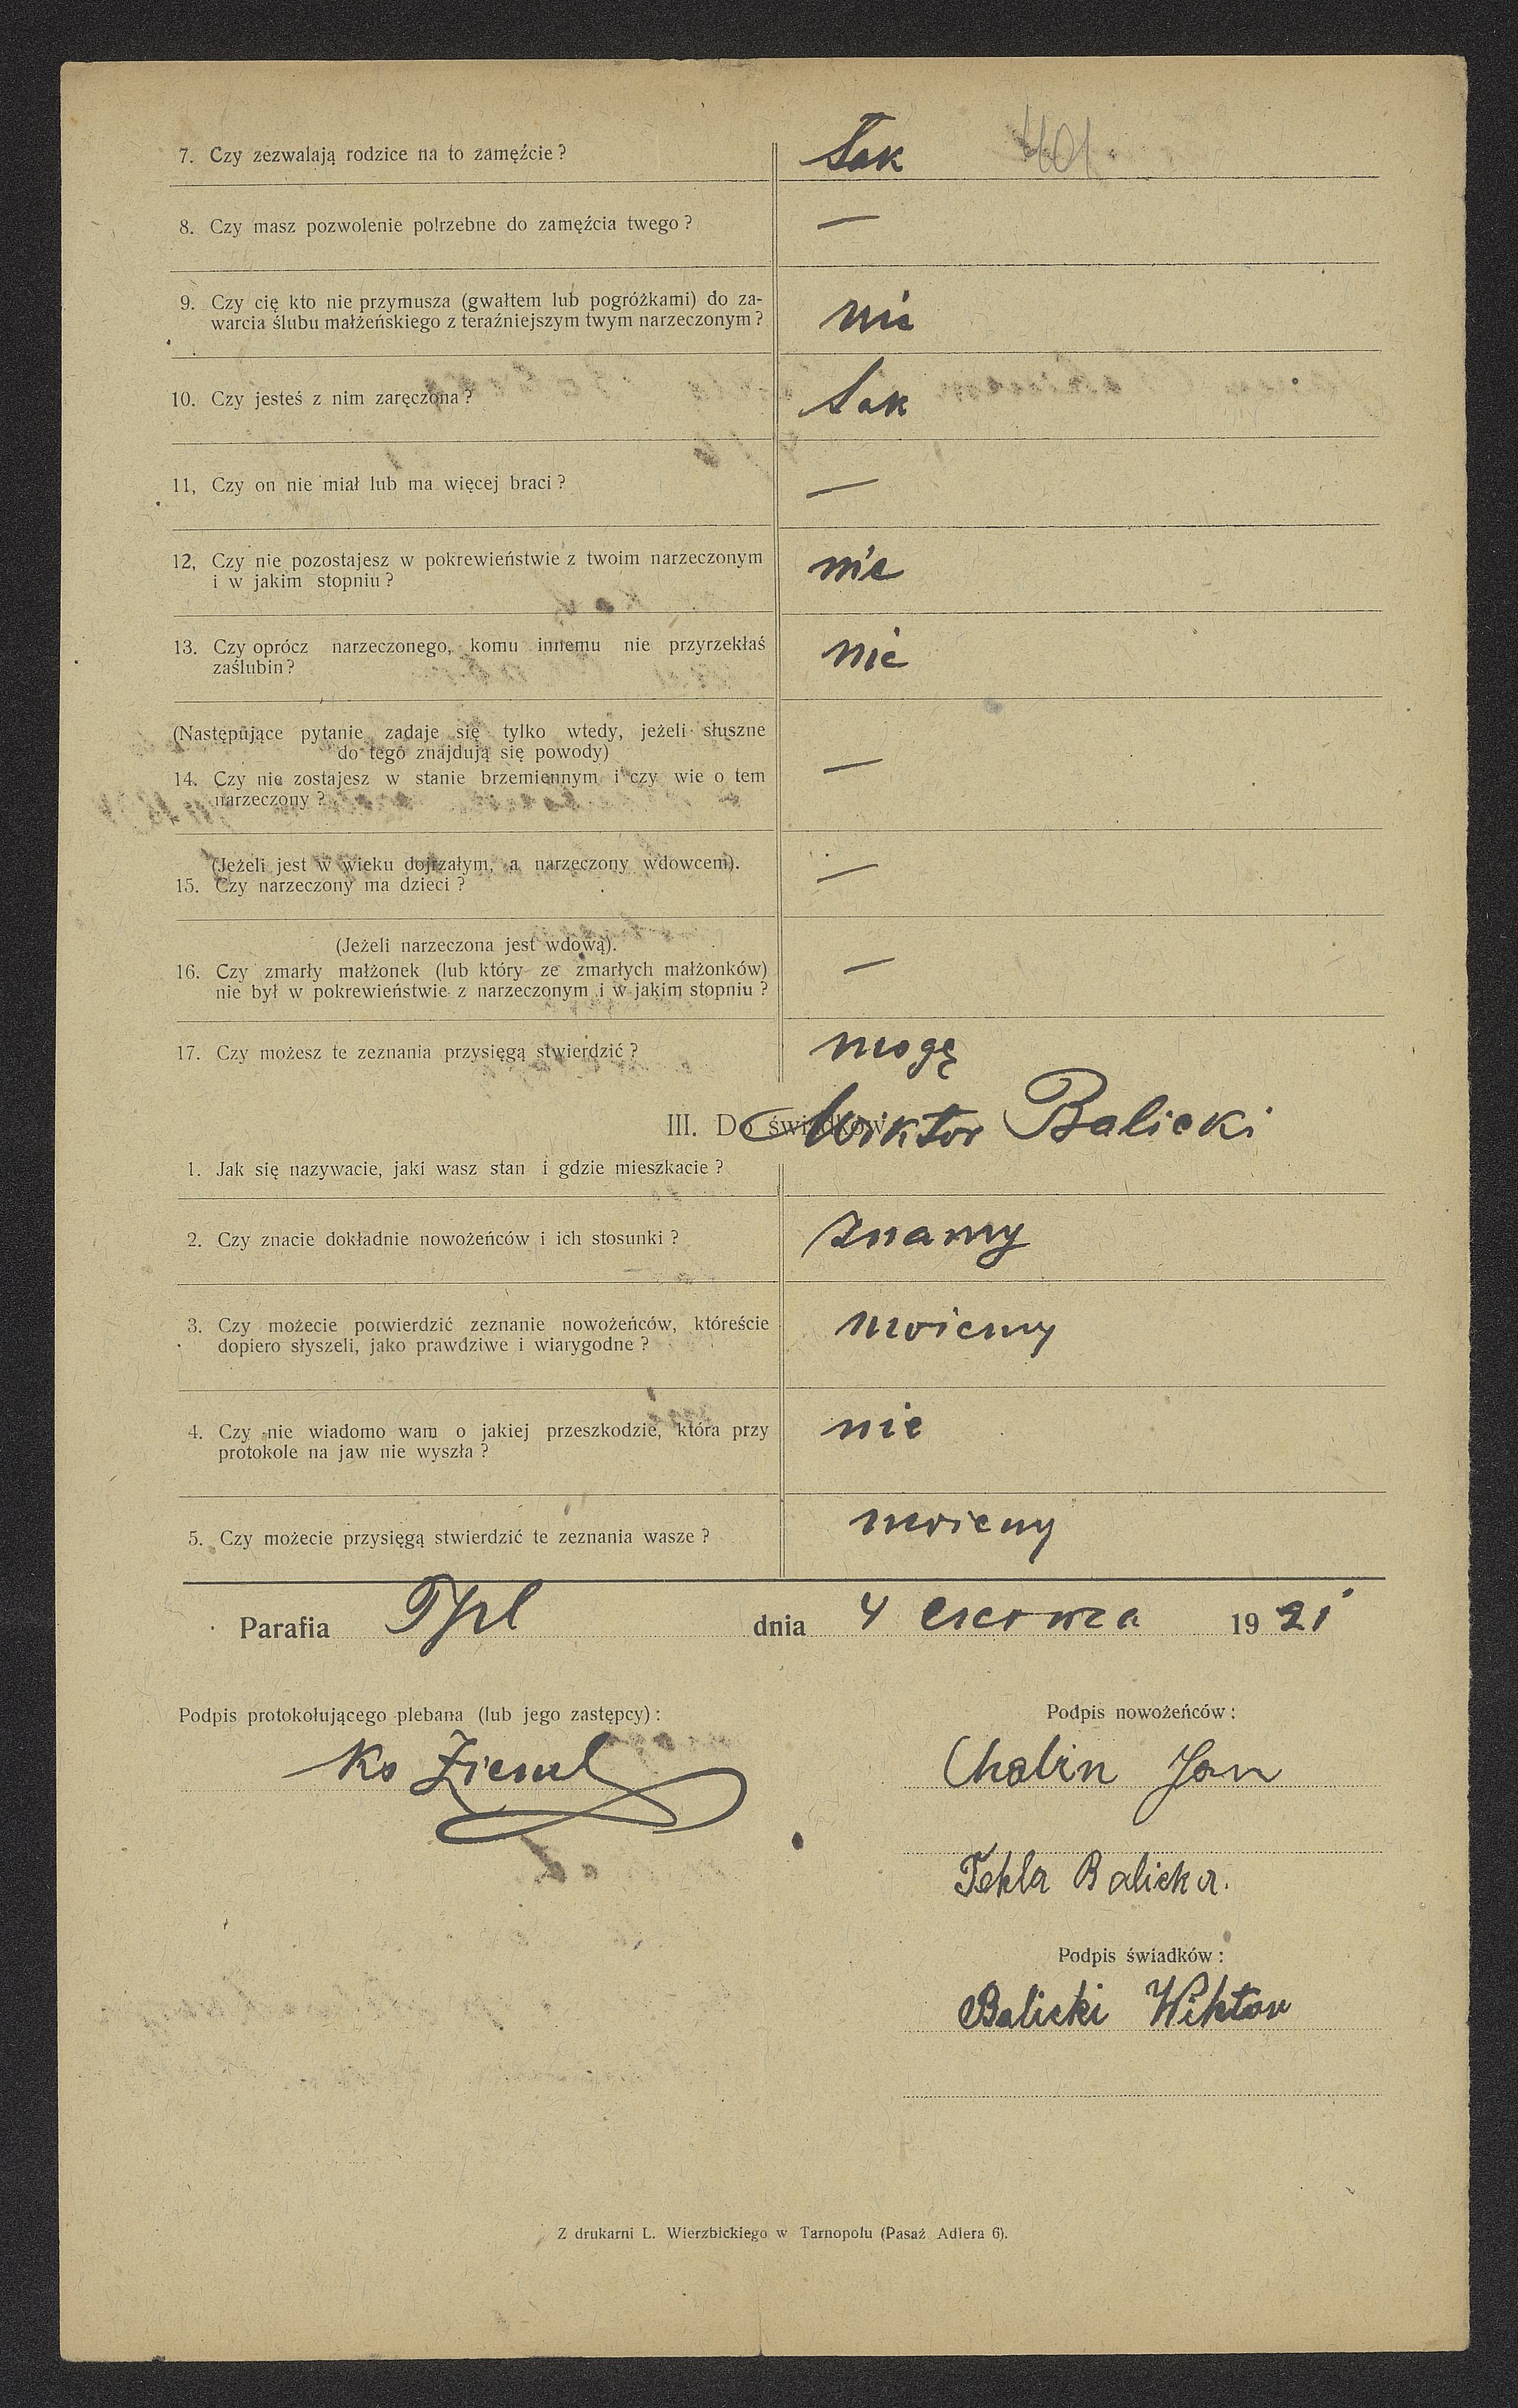 401.
7. Czy zezwalają rodzice na to zamęźcie? Tak
8. Czy masz pozwolenie potrzebne do zamęźcia twego? —
9. Czy cię kto nie przymusza (gwałtem lub pogróżkami) do za-
warcia ślubu małżeńskiego z teraźniejszym twym narzeczonym? nie
10. Czy jesteś z nim zaręczona? Tak
11, Czy on nie miał lub ma więcej braci? —
12, Czy nie pozostajesz w pokrewieństwie z twoim narzeczonym
i w jakim stopniu? nie
13. Czy oprócz narzeczonego, komu innemu nie przyrzekłaś
zaślubin? nie
(Następujące pytanie zadaje się tylko wtedy, jeżeli słuszne
do tego znajdują się powody)
14. Czy nie zostajesz w stanie brzemiennym i czy wie o tem
narzeczony? —
(Jeżeli jest w wieku dojrzałym, a narzeczony wdowcem).
15. Czy narzeczony ma dzieci? —
(Jeżeli narzeczona jest wdową).
16. Czy zmarły małżonek (lub który ze zmarłych małżonków)
nie był w pokrewieństwie z narzeczonym i w jakim stopniu? —
17. Czy możesz te zeznania przysięgą stwierdzić? mogę
III. Do świadków
Wiktor Balicki
1. Jak się nazywacie, jaki wasz stan i gdzie mieszkacie?
2. Czy znacie dokładnie nowożeńców i ich stosunki? znamy
3. Czy możecie potwierdzić zeznanie nowożeńców, któreście
dopiero słyszeli, jako prawdziwe i wiarygodne? możemy
4. Czy nie wiadomo wam o jakiej przeszkodzie, która przy
protokole na jaw nie wyszła? nie
5. Czy możecie przysięgą stwierdzić te zeznania wasze? możemy
Parafia Tpl dnia 4 czerwca 1921
Podpis protokołującego plebana (lub jego zastępcy):
Podpis nowożeńców:
Ks
Chabin Jan
Tekla Balicka.
Podpis świadków:
Balicki Wiktor
Z drukarni L. Wierzbickiego w Tarnopolu (Pasaż Adlera 6).